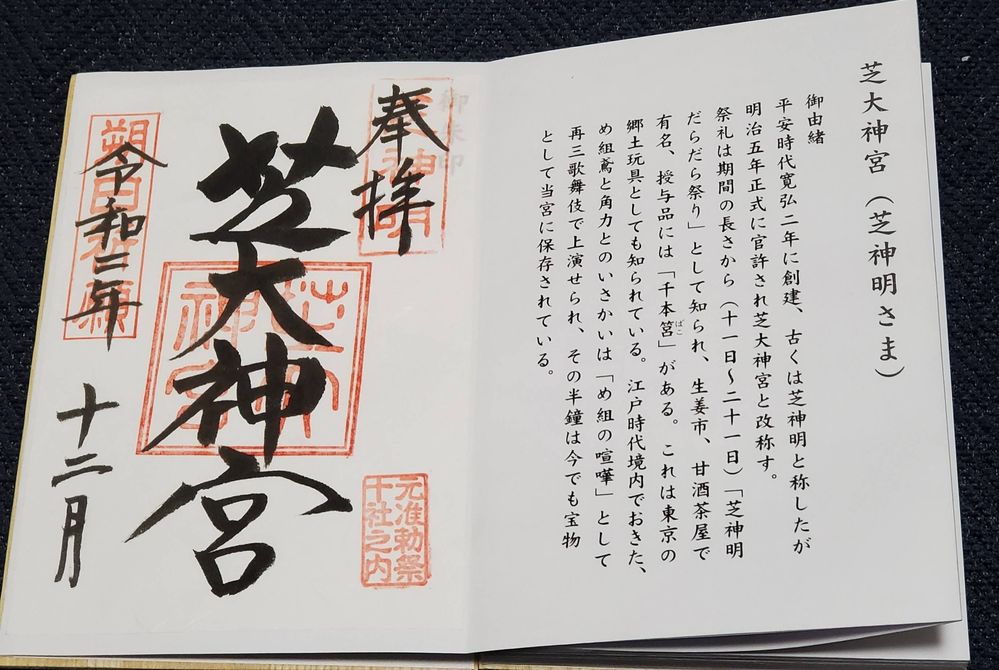 芝大神宮(芝神明さま)
御由緒
平安時代寛弘二年に創建、古くは芝神明と称したが
明治五年正式に官許され芝大神宮と改称す。
祭礼は期間の長さから(十一日~二十一日)「芝神明
だらだら祭り」として知られ、生姜市、甘酒茶屋で
有名、授与品には「千本筥」がある。これは東京の
ばこ
郷土玩具としても知られている。江戸時代境内でおきた、
め組鳶と角力とのいさかいは「め組の喧嘩」として
再三歌舞伎で上演せられ、その半鐘は今でも宝物
として当宮に保存されている。
奉拝
元准勅祭
十社之内
芝大神宮
令和二年
十二月